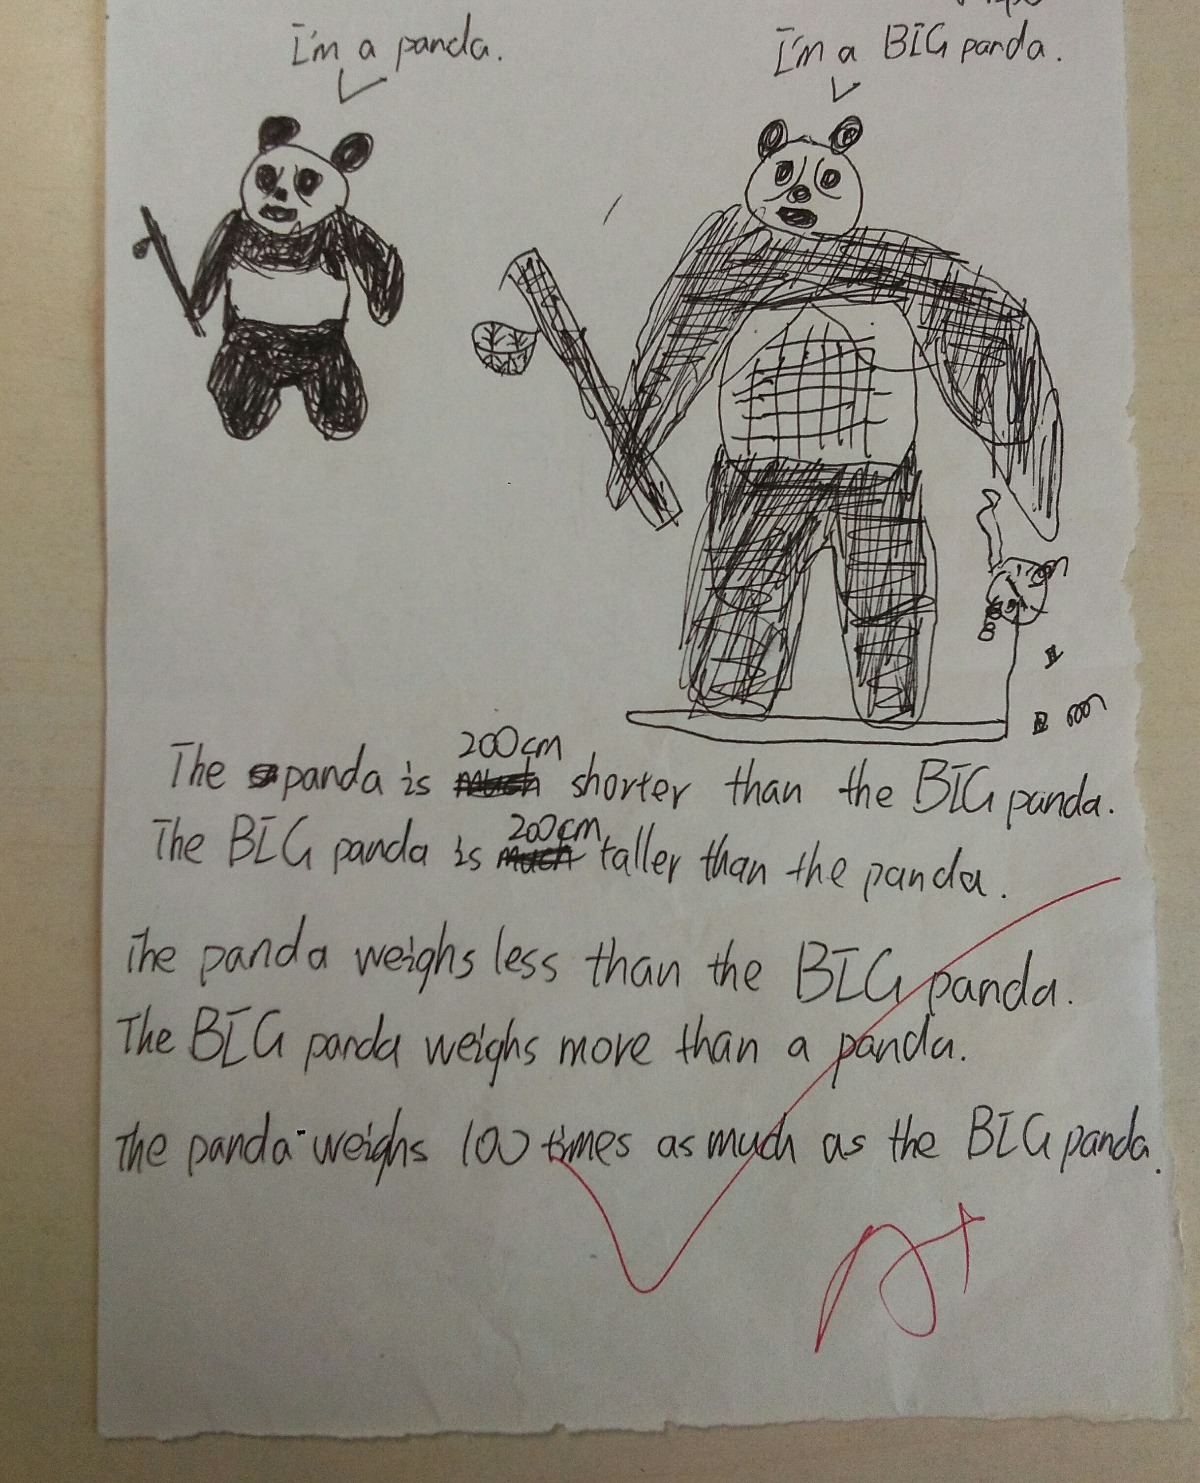 I'm a panda.
I'm a BIG panda.
The panda is 200cm shorter than the BIG panda.
The BIG panda is 200cm taller than the panda.
The panda weighs less than the BIG panda.
The BIG panda weighs more than a panda.
The panda weighs 100 times as much as the BIG panda.
A+